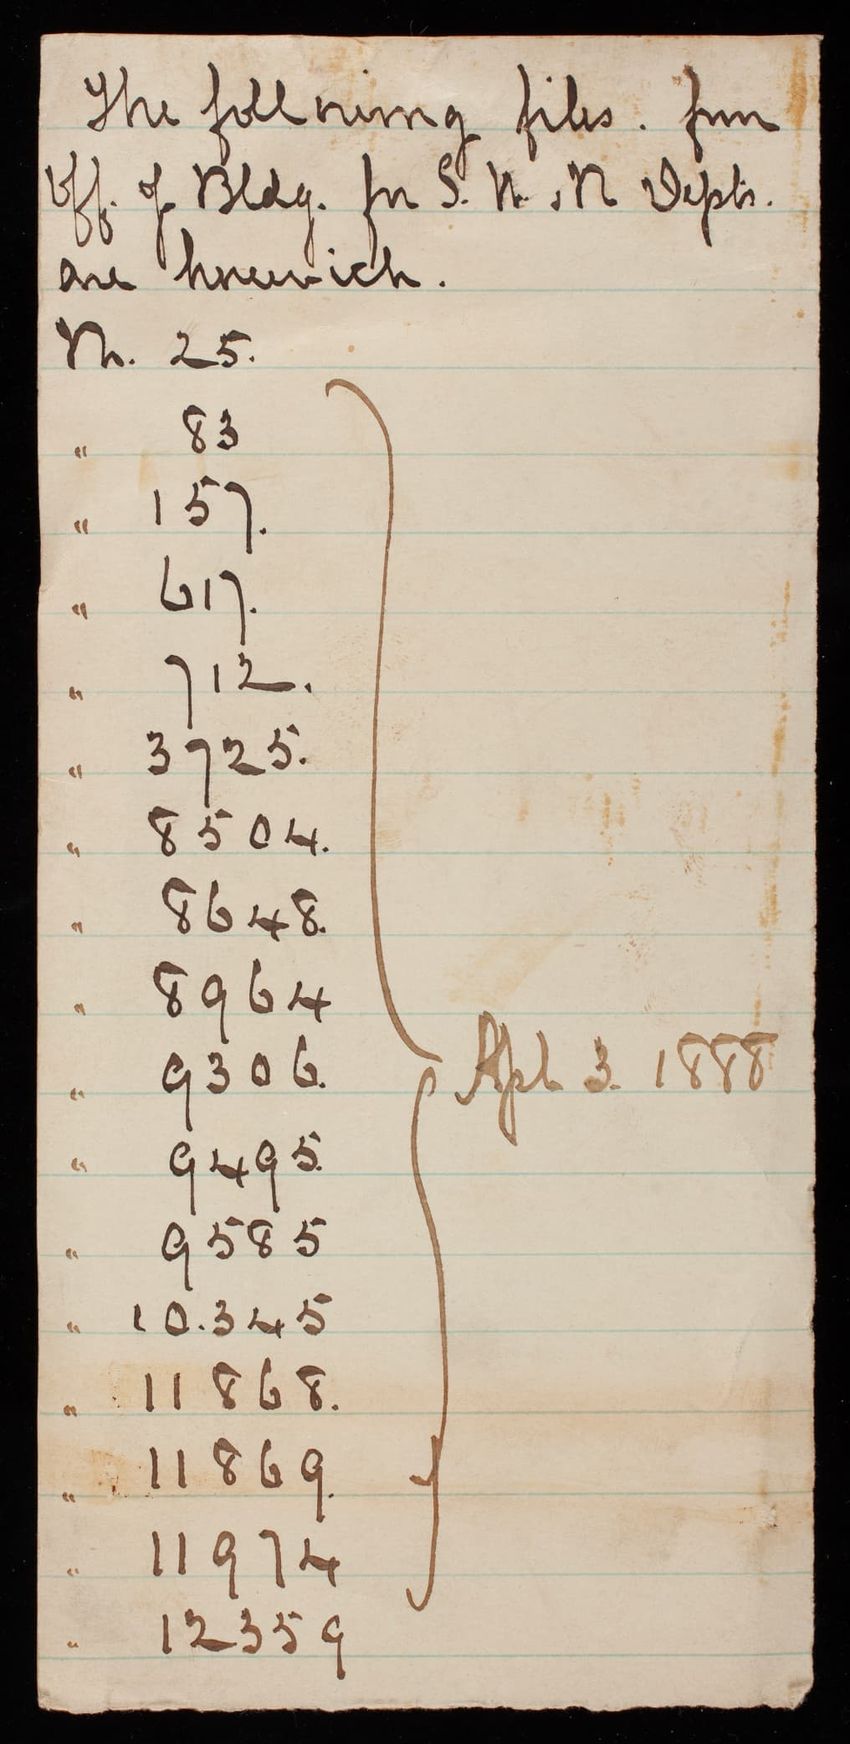 The following files. from
Off. of Bldg. for S. W. & N Depts.
are herewith.
No. 25.
" 83
" 157.
" 617.
" 712.
" 3725.
" 8504.
" 8648.
" 8964
" 9306.
" 9495.
" 9585
" 10.345
" 11868.
" 11869.
" 11974
" 12359
Apl. 3. 1888